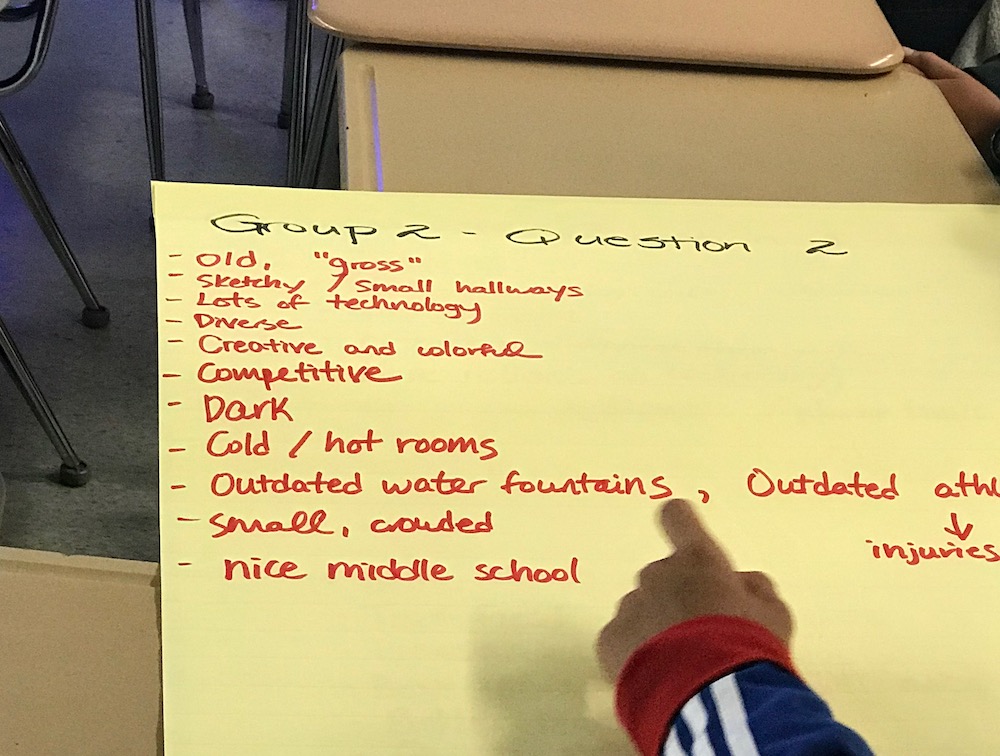 Group 2 - Question 2
- Old, "gross"
- Sketchy / Small hallways
- Lots of technology
- Diverse
- Creative and colorful
- Competitive
- Dark
- Cold / hot rooms
- Outdated water fountains, Outdated
↓
- Small, crowded
injuries
- nice middle school